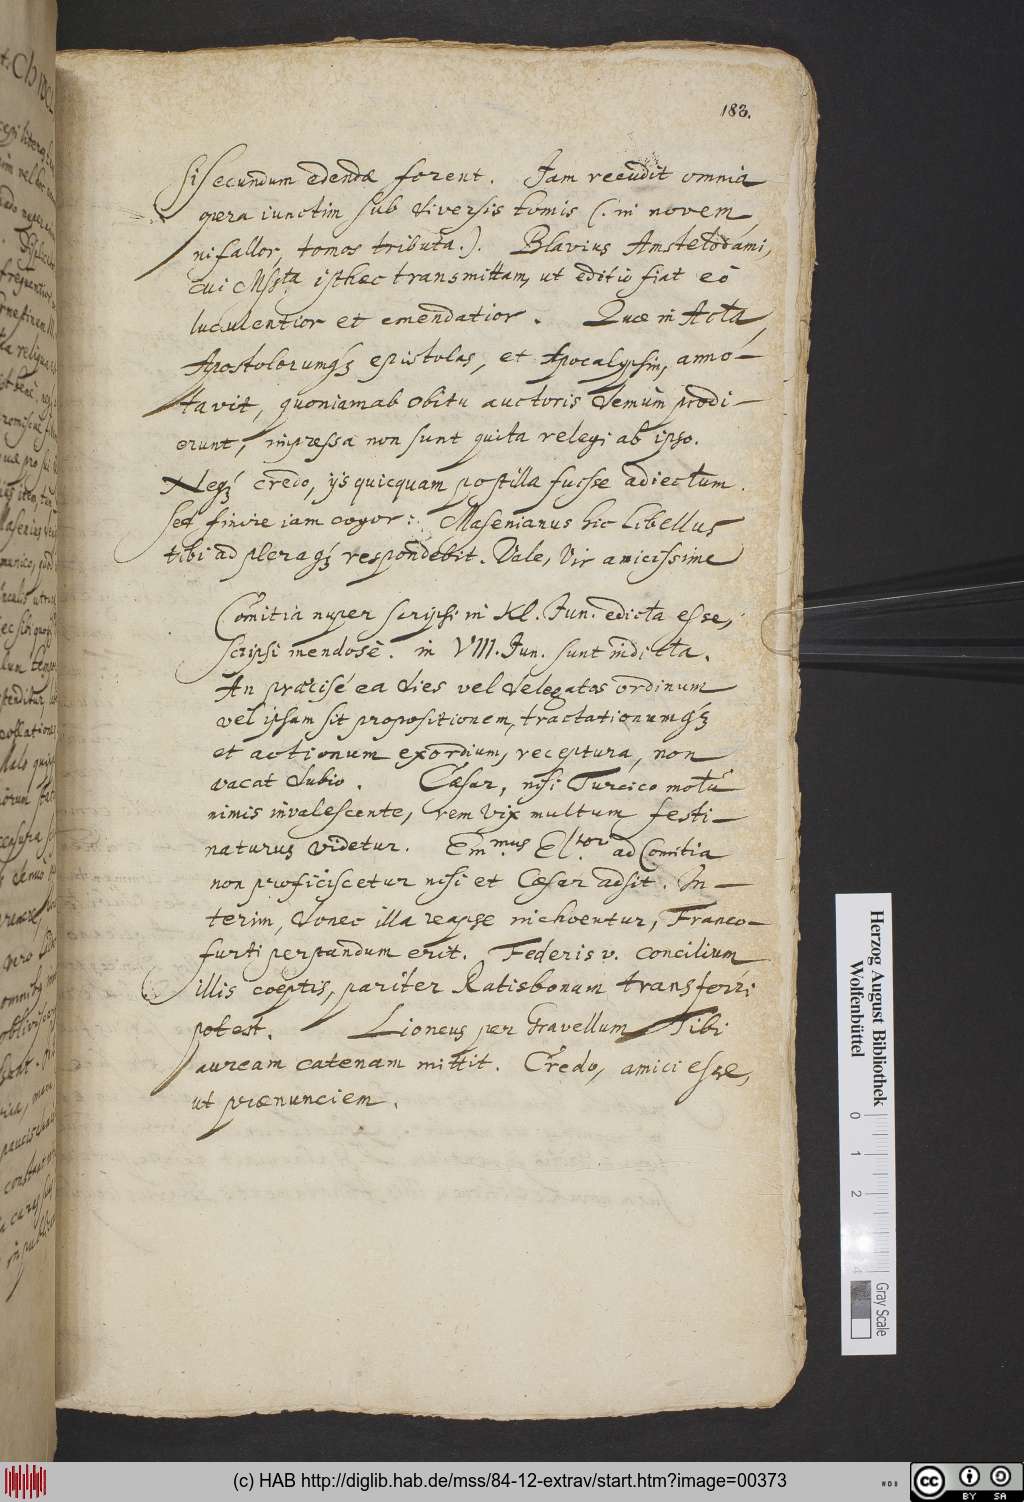 183.
si secundum edendæ forent. Jam recudit omnia
opera iunctim sub diversis tomis (. in novem
ni fallor, tomos tributa.). Blavius Amstelodami,
cui Mssta isthæc transmittam, ut editio fiat eò
luculentior et emendatior. Quæ in Acta
Apostolorumq́ꝫ epistolas, et Apocalypsin, anno-
tavit, quoniam ab obitu auctoris demum prodi-
erunt, impressa non sunt quita relegi ab ipso.
Neqꝫ́ credo, ijs quicquam postilla fuisse adiectum.
Sed finire iam cogor: Masenianus hic libellus
tibi ad pleraq́ꝫ respondebit. Vale, Vir amicissime
Comitia nuper scripsi in Kl. Jun. edicta esse,
scripsi mendosè. in VIII. Jun. sunt indicta.
An præcisé ea dies vel delegatos ordinum
vel ipsam sit propositionem, tractationumq́ꝫ
et actionum exordium, receptura, non
vacat dubio. Cæsar, nisi Turcico motu
nimis invalescente, rem vix multum festi-
naturus videtur. Em.mus El.tor ad Comitia
non proficiscetur nisi et Cæsar adsit. In-
terim, donec illa reapse inchoentur, Franco-
furti perstandum erit. Federis v. concilium
illis coeptis, pariter Ratisbonam transferri
potest. Lioneus per Gravellum Tibi
auream catenam mittit. Credo, amici esse,
ut prænunciem.
Herzog August Bibliothek
Wolfenbüttel
0 1 2 4
Gray Scale
(c) HAB http://diglib.hab.de/mss/84-12-extrav/start.htm?image=00373
cc BY SA